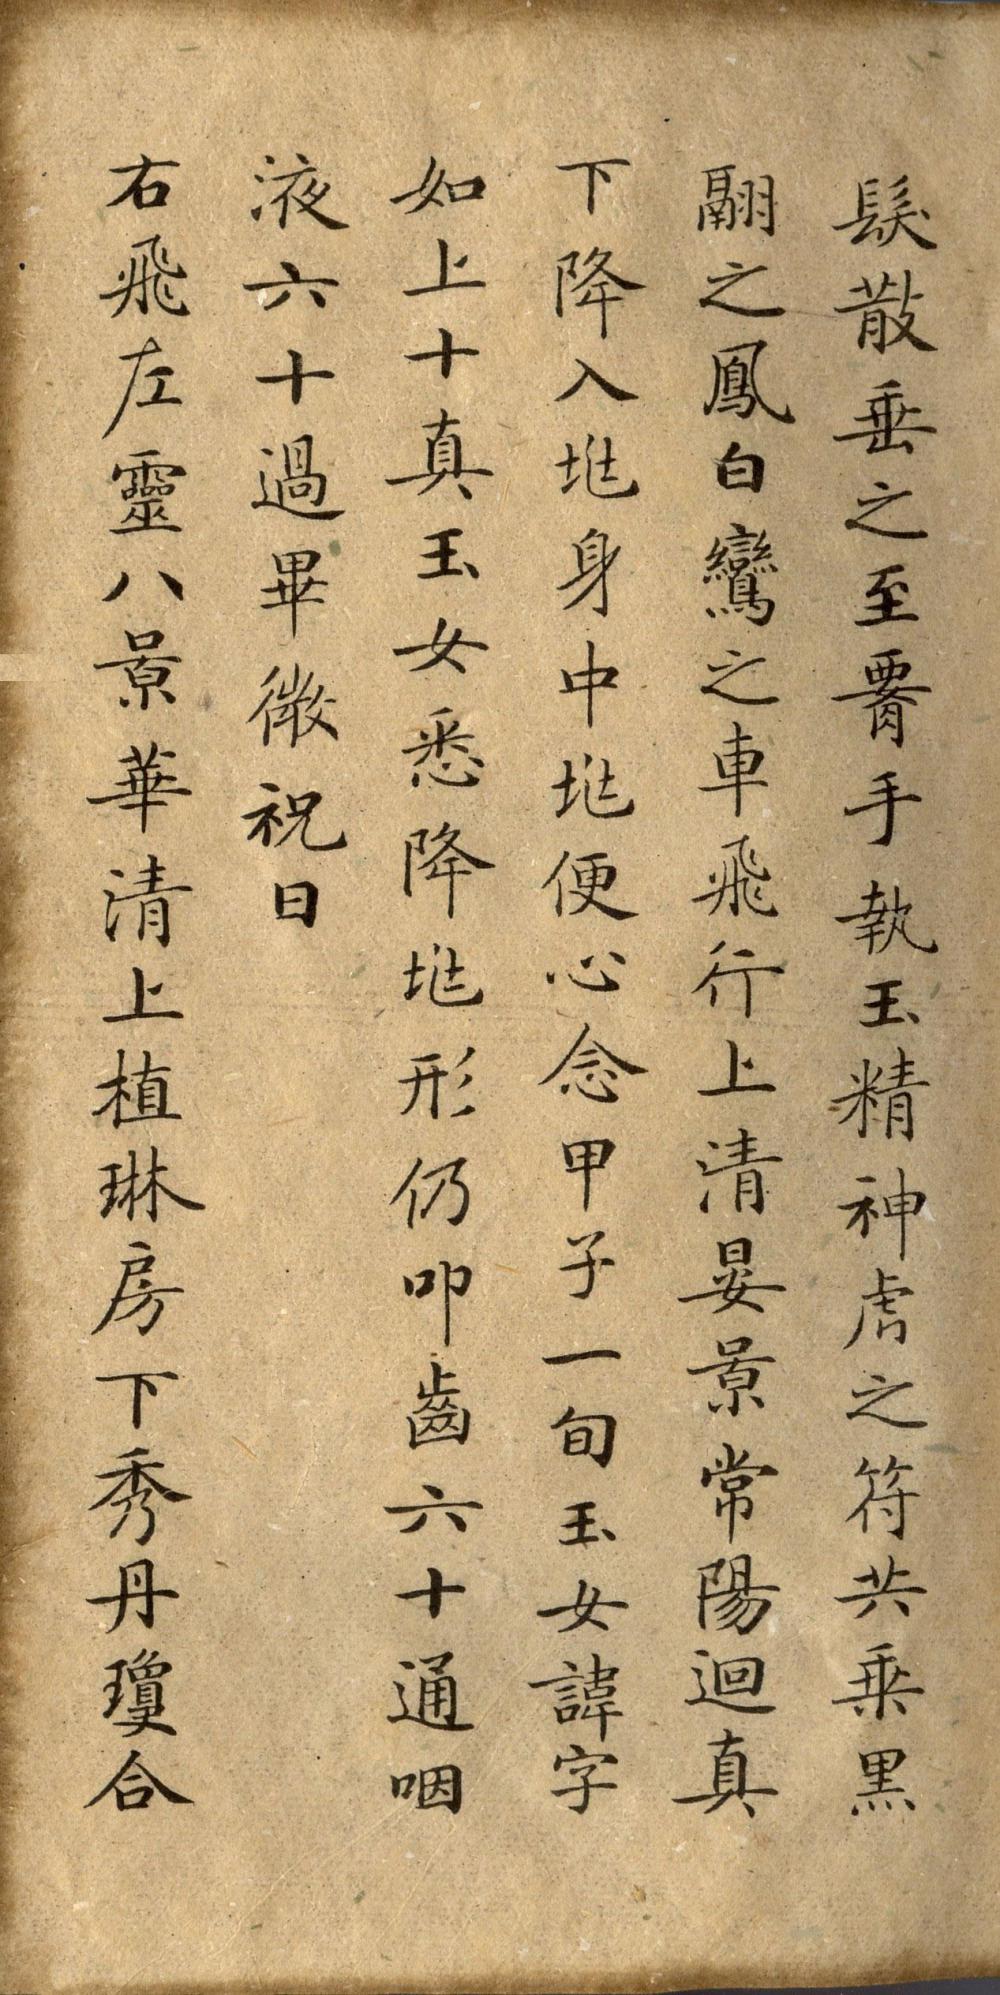 髮散垂之至署手執玉精神虎之符共乘黑
翮之鳳白鸞之車飛行上清晏景常陽迴真
下降入兆身中兆便心念甲子一旬玉女諱字
如上十真玉女悉降兆形仍叩齒六十通咽
液六十過畢微祝曰
右飛左靈八景華清上植琳房下秀丹瓊合